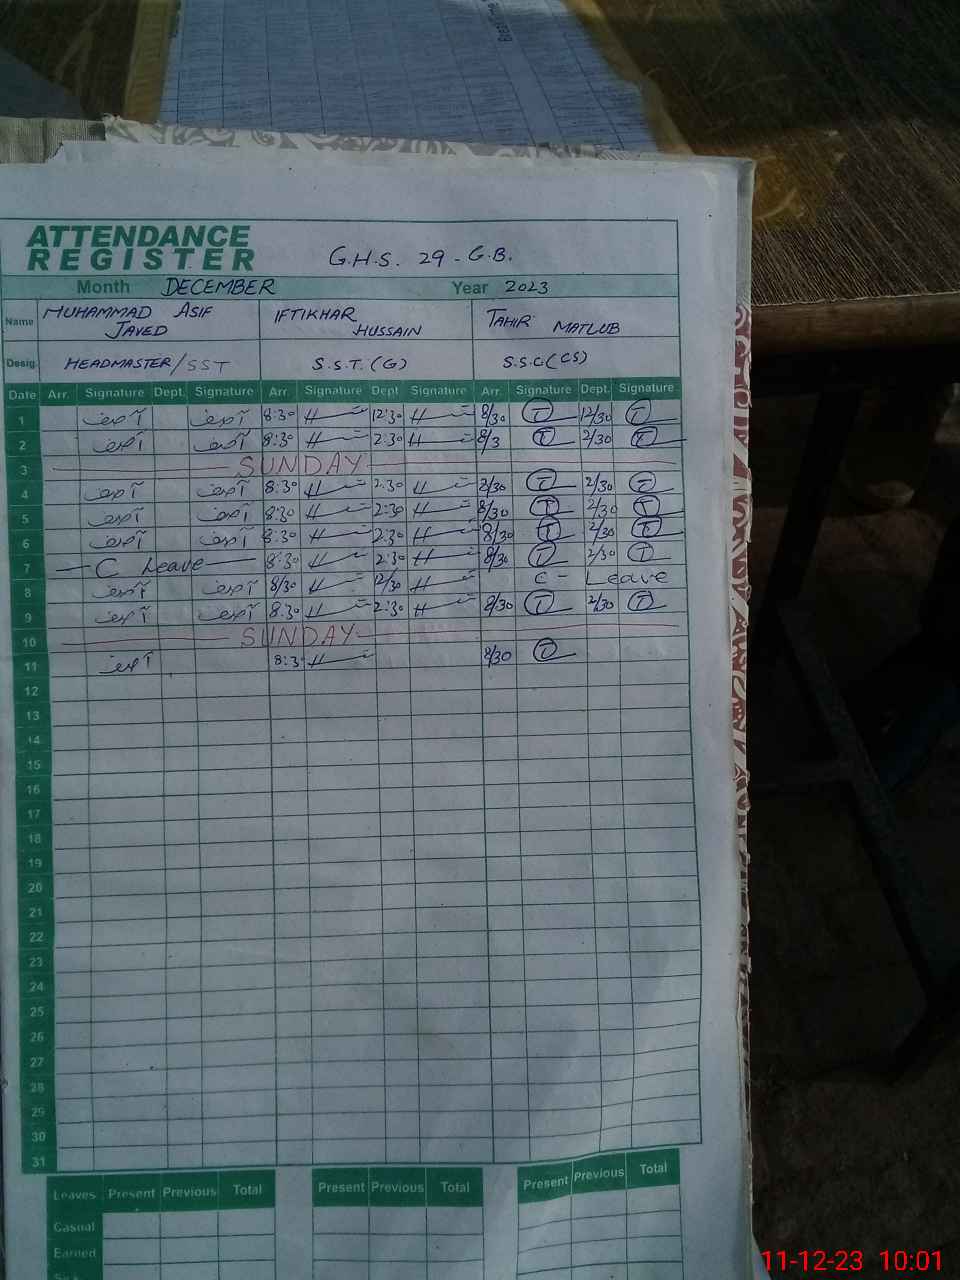 ATTENDANCE
REGISTER G.H.S. 29-G.B.
Month DECEMBER Year 2023
Name MUHAMMAD ASIF JAVED IFTIKHAR HUSSAIN TAHIR MATLUB
Desig. HEADMASTER/SST S.S.T.(G) (CS)
Date Arr. Signature Dept. Signature Arr. Signature Dept Signature Arr. Signature Dept. Signature
1 آصف آصف 8:30 H 12:30 H 8/30 T 12/30 T
2 آصف آصف 8:30 H 2:30 H 8/3 T 2/30 T
3 SUNDAY
4 آصف آصف 8:30 H 2:30 H 8/30 T 2/30 T
5 آصف آصف 8:30 H 2:30 H 8/30 T 2/30 T
6 آصف آصف 8:30 H 2:30 H 8/30 T 2/30 T
7 C Leave 8:30 H 2:30 H 8/30 T 2/30 T
8 آصف آصف 8/30 H 12/30 H C - Leave
9 آصف آصف 8:30 H 2:30 H 8/30 T 2/30 T
10 SUNDAY
11 آصف 8:3 H 8/30 T
12
13
14
15
16
17
18
19
20
21
22
23
24
25
26
27
28
29
30
31
Leaves Present Previous Total Present Previous Total Present Previous Total
Casual
Earned
11-12-23 10:01